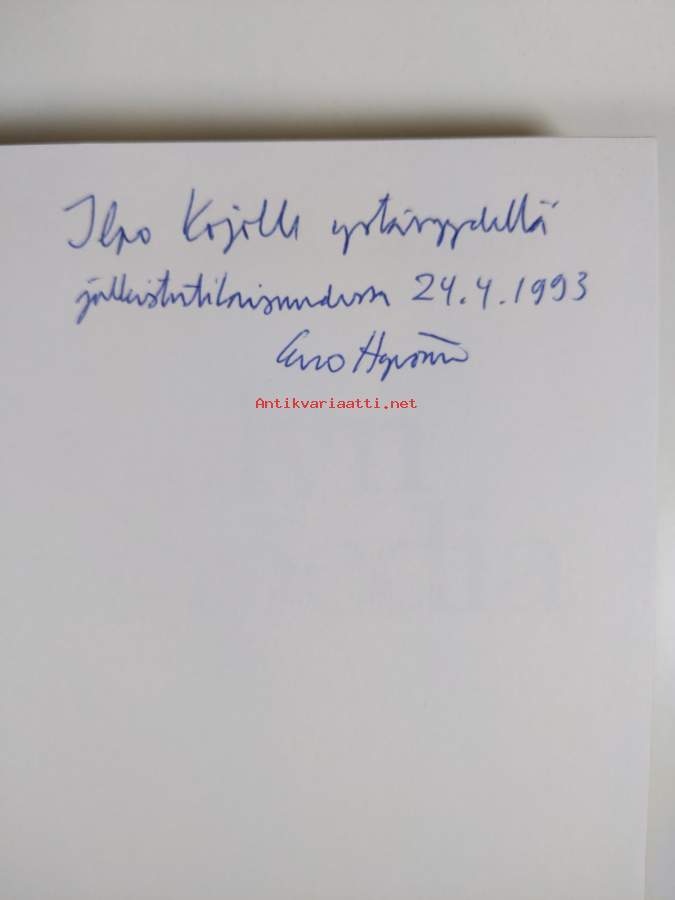 Ilpo Kojolle ystävyydellä
julkistustilaisuudessa 24.4.1993
Eero Hyvönen
Antikvariaatti.net